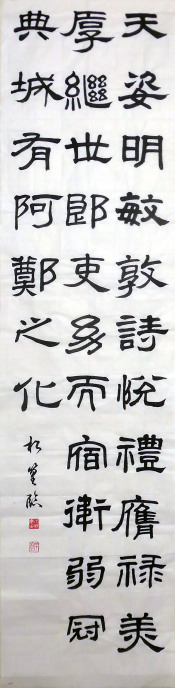 天姿明敏敦詩悅禮膺祿美
厚繼世郎吏幼而宿衛弱冠
典城有阿鄭之化
臨